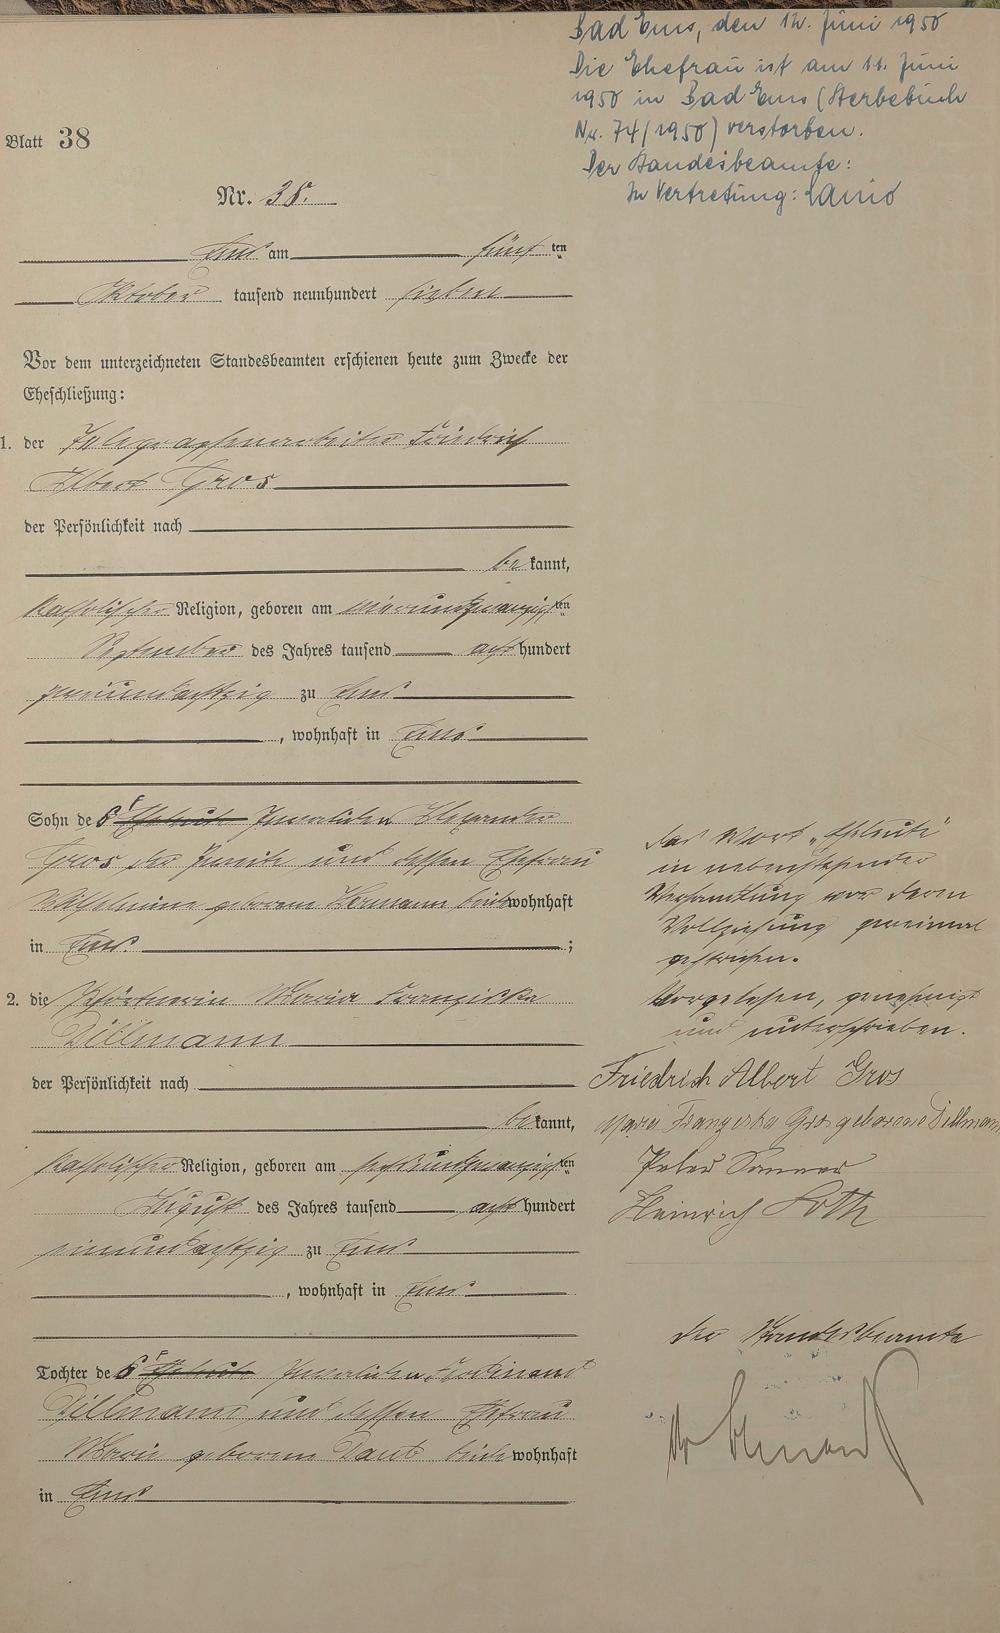 Bad Ems, den 12. Juni 1950
Die Ehefrau ist am 11. Juni
1950 in Bad Ems (Sterbebuch
Nr. 74/1950) verstorben.
Der Standesbeamte:
In Vertretung:
Blatt 38
Nr. 38.
Ems am fünften
Oktober tausend neunhundert sieben
Vor dem unterzeichneten Standesbeamten erschienen heute zum Zwecke der
Eheschließung:
1. der Telegraphenarbeiter Friedrich
Albert Gros
der Persönlichkeit nach
bekannt,
katholischer Religion, geboren am vierundzwanzigsten
September des Jahres tausend achthundert
zweiundachtzig zu Ems
, wohnhaft in Ems
Sohn des Eheleute Invaliden Alexander
Gros der Zweite und dessen Ehefrau
Wilhelmine geborene Hermann beide wohnhaft
in Ems ;
2. die Maria Franziska
Dillmann
der Persönlichkeit nach
bekannt,
katholischer Religion, geboren am sechsundzwanzigsten
August des Jahres tausend achthundert
einundachtzig zu Ems
, wohnhaft in Ems
Tochter des Eheleute Invaliden Ferdinand
Dillmann und dessen Ehefrau
Marie geborene Daub beide wohnhaft
in Ems
Das Wort „Eheleute"
in nebenstehender
Verhandlung vor deren
Vollziehung zweimal
gestrichen.
Vorgelesen, genehmigt
und unterschrieben.
Friedrich Albert Gros
Maria Franziska Gros geborene Dillmann
Peter
Heinrich Loth
Der Standesbeamte